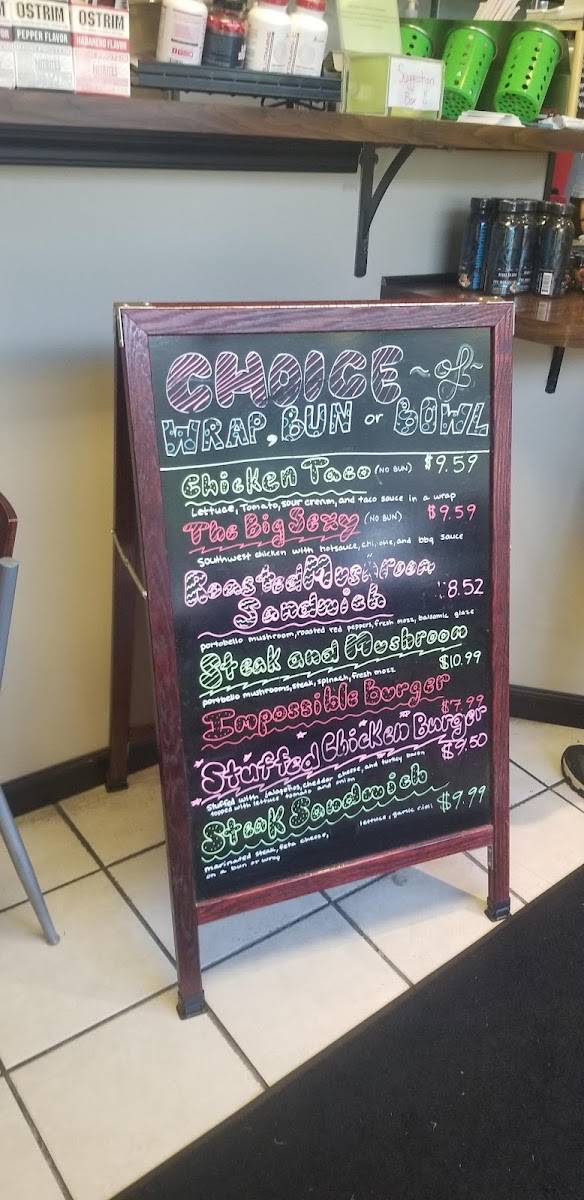 OSTRIM
OSTRIM
PEPPER FLAVOR
HABANERO FLAVOR
Suggestion
CHOICE ~of~
WRAP, BUN or BOWL
Chicken Taco (NO BUN) $9.59
Lettuce, Tomato, sour cream, and taco sauce in a wrap
The Big Sexy (NO BUN) $9.59
Southwest chicken with hotsauce, and bbq sauce
Roasted Mushroom
Sandwich 8.52
portobello mushroom, roasted red peppers, fresh mozz, balsamic glaze
Steak and Mushroom
$10.99
portbello mushrooms, steak, spinach, fresh mozz
Impossible Burger
$7.99
Stuffed Chicken Burger
$9.50
Stuffed with jalapeños, cheddar cheese, and turkey bacon
topped with lettuce tomato and onion
Steak Sandwich $9.99
marinated steak, feta cheese, lettuce, garlic
on a bun or wrap